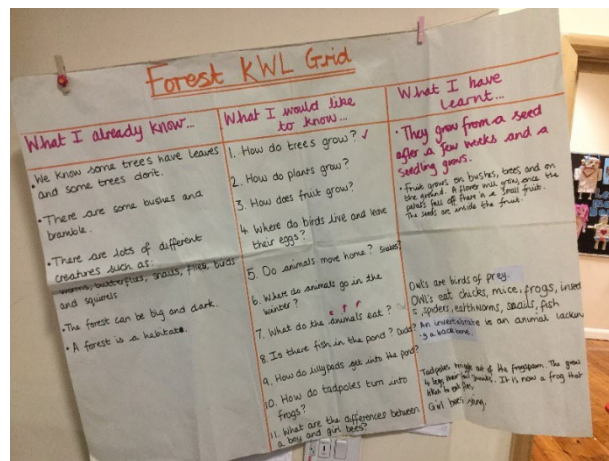 Forest KWL Grid
What I already know...
• We know some trees have leaves
and some trees don't.
• There are some bushes and
bramble.
• There are lots of different
creatures such as:
worms, butterflies, snails, flies, birds
and squirrels
• The forest can be big and dark.
• A forest is a habitat.
What I would like
to know...
1. How do trees grow? ✓
2. How do plants grow?
3. How does fruit grow?
4. Where do birds live and leave
their eggs?
5. Do animals move home? Snakes?
6. Where do animals go in the
winter?
7. What do the animals eat?
8. Is there fish in the pond? Ducks?
9. How do lillypads get into the pond?
10. How do tadpoles turn into
frogs?
11. What are the differences between
a boy and girl bees?
What I have
learnt...
• They grow from a seed
after a few weeks and a
seedling grows.
• Fruit grows on bushes, trees and on
the ground. A flower will grow, once the
petals fall off there is a small fruit.
The seeds are inside the fruit.
Owls are birds of prey.
OWls eat chicks, mice, frogs, insect
s, spiders, earthworms, snails, fish
An invertebrate is an animal lackin
g a backbone.
Tadpoles out of the frogspawn. The grow
4 legs, their tail. It is now a frog that
likes to eat flies.
Girl bees sting.